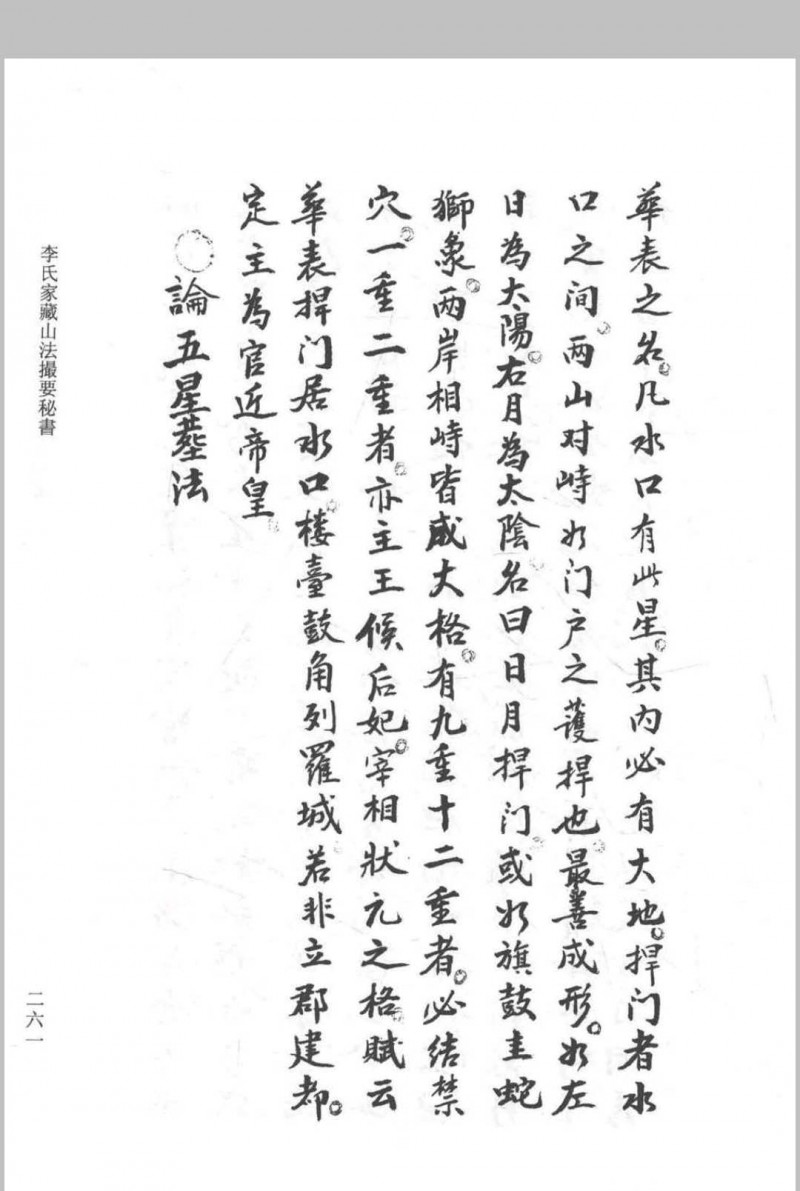 華表之名。凡水口有此星。其内必有大地。捍门者水
口之间。两山对峙如门户之護捍也。最善成形。如左
日為太陽。右月為太陰。名曰日月捍门。或如旗鼓圭蛇
獅象。两岸相峙皆成大格。有九重十二重者。必结禁
穴。一重二重者。亦主王候后妃。宰相狀元之格。賦云
華表捍门居水口。楼臺鼓角列羅城。若非立郡建都。
定主為官近帝皇。
〇論五星塟法
李氏家藏山法撮要秘書
二六一